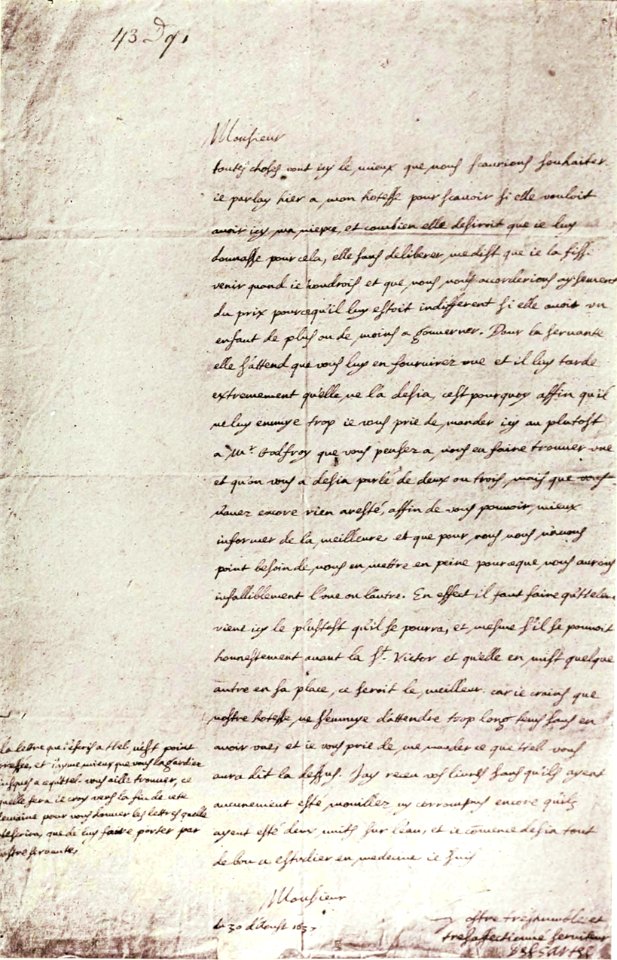 43 D 91
Monsieur
toutes choses vont icy le mieux que nous scaurions souhaiter
ie parlay hier a mon hotesse pour scavoir si elle vouloit
avoir icy ma niepce, et combien elle desiroit que ie luy
donnasse pour cela, elle sans deliberer, me dist que ie la fisse
venir quand ie voudrois et que nous nous acorderions aysement
du prix pource qu'il luy estoit indifferent si elle avoit un
enfant de plus ou de moins a gouverner. Pour la servante
elle s'attend que vous luy en fournirez une et il luy tarde
extremement qu'elle ne l'a desia, c'est pourquoy affin qu'il
ne luy ennuye trop ie vous prie de mander icy au plutost
a Mr Godfroy que vous pensez a nous en faire trouver une
et qu'on vous a desia parlé de deux ou trois, mais que vous
n'avez encore rien aresté, affin de vous pouvoir mieux
informer de la meilleure et que pour nous nous n'avons
point besoin de nous en mettre en peine pource que nous aurons
infalliblement l'une ou l'autre. En effect il faut faire qu'
vient icy le plustost qu'il se pourra, et mesme s'il se pouvoit
honnestement avant la St Victor et qu'elle en mist quelque
autre en sa place, ce seroit le meilleur, car ie crains que
nostre hotesse ne s'ennuye d'attendre trop long tems sans en
avoir une, et ie vous prie de me mander ce que vous
aura dit la dessus. J'ay receu vos livres sans qu'ils ayent
aucunement esté mouillez ny corrompus encore qu'ils
ayent esté deux nuits sur l'eau, et ie commence desia tout
de bon a estudier en medecine ie suis
Monsieur
du 30 d'Aoust 1637
Vostre tres humble et
tres affectionné serviteur
DESCARTES
la lettre que i'escris a n'est point
pressée, et i'ayme mieux que vous la gardiez
iusques a ce qu' vous aille trouver, ce
qu'elle fera ie croy vers la fin de cete
semaine pour vous donner les lettres qu'elle
que de luy faire porter par
vostre servante.